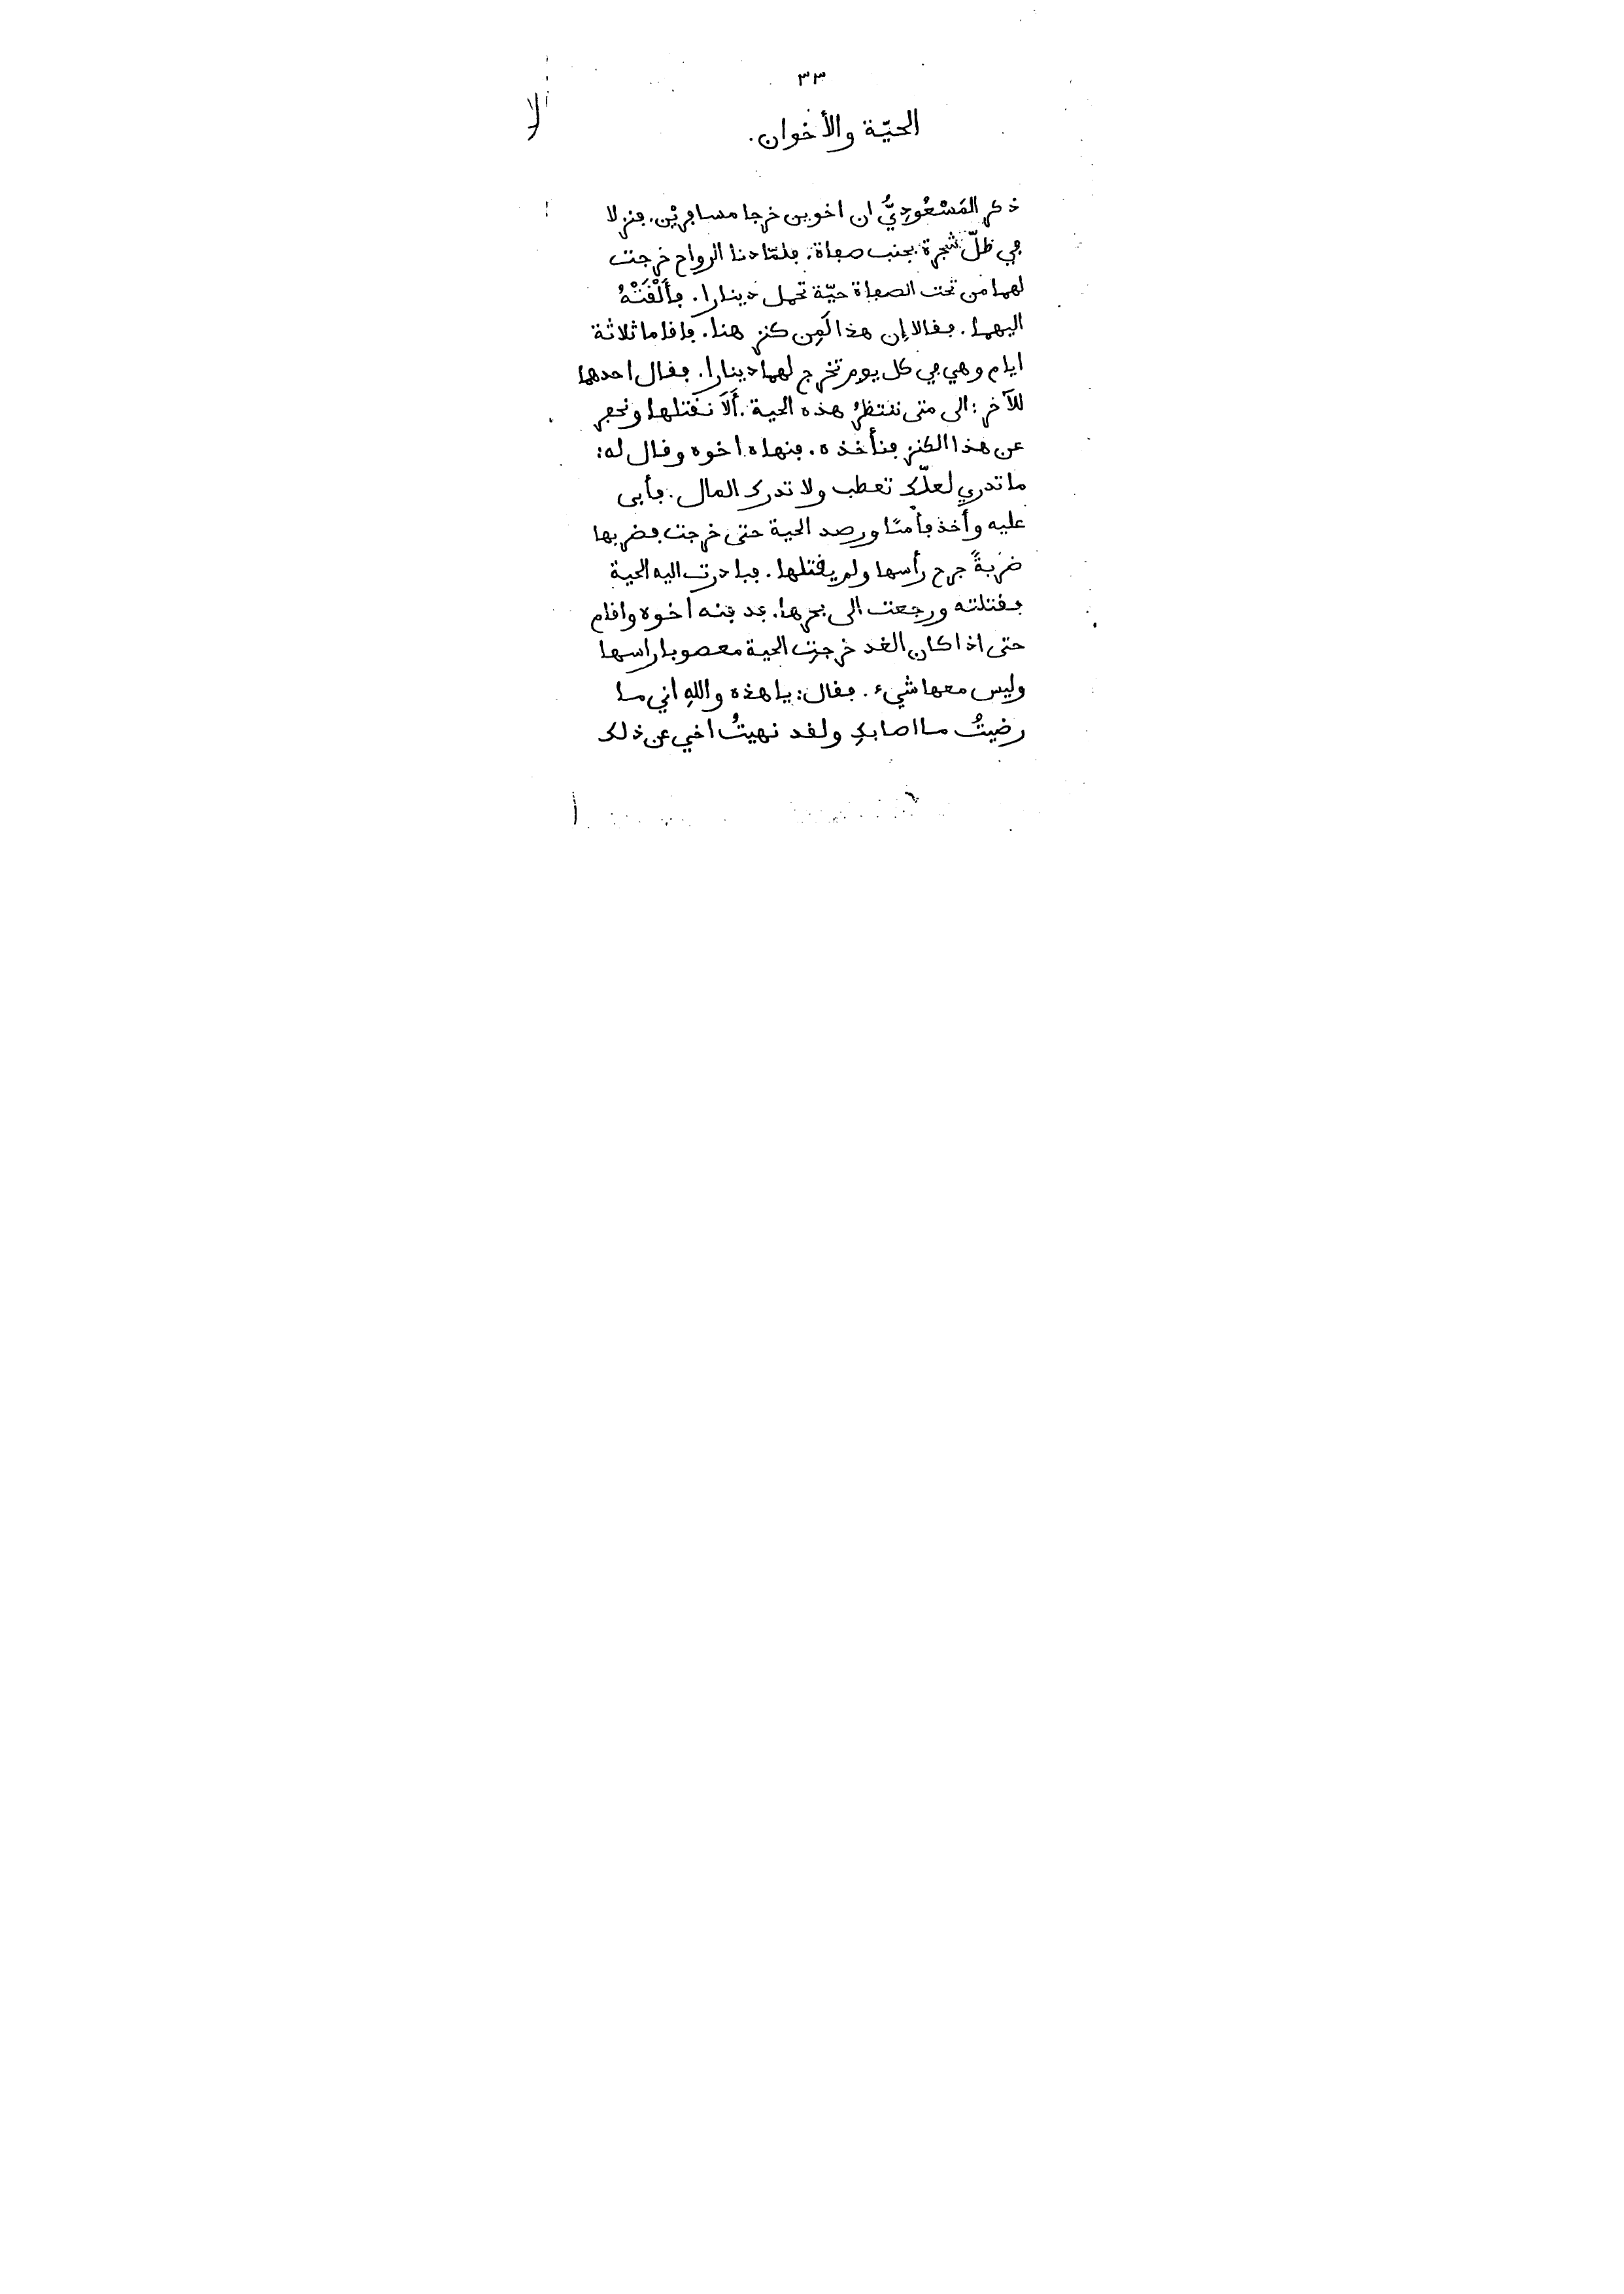 ٣٣
الحيّة والأخوان.
ذكر المَسْعُودِيُّ ان اخوين خرجا مسافرَيْن. فنزلا
في ظلّ شجرة بجنب صفاة. فلمّا دنا الرواح خرجت
لهما من تحت الصفاة حيّة تحمل دينارا. فأَلْقَتْهُ
اليهما. فقالا إن هذا لَمِن كنز هنا. فاقاما ثلاثة
ايام وهي في كل يوم تخرج لهما دينارا. فقال احدهما
للآخر: الى متى ننتظرُ هذه الحية. أَلَا نقتلها ونحفر
عن هذا الكنز فنأخذه. فنهاه اخوه وقال له:
ما تدري لعلّك تعطب ولا تدرك المال. فأبى
عليه وأخذ فأسًا ورصد الحية حتى خرجت فضربها
ضربةً جرح رأسها ولم يقتلها. فبادرت اليه الحية
فقتلته ورجعت الى جحرها. فدفنه اخوه واقام
حتى اذا كان الغد خرجت الحية معصوبا راسها
وليس معها شيء. فقال: يا هذه واللهِ اني ما
رضيتُ ما اصابكِ ولقد نهيتُ اخي عن ذلك